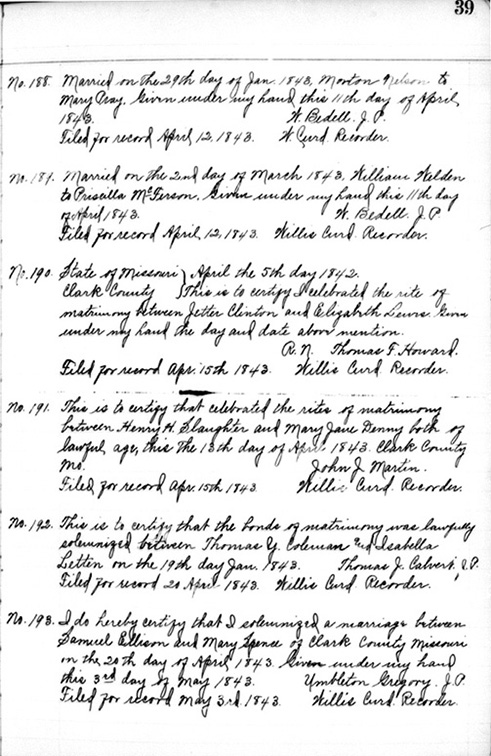 39
No. 188. Married on the 29th day of Jan. 1843, Morton Nelson to
Mary Gray. Given under my hand this 11th day of April,
1843. W. Bedell, J. P.
Filed for record April, 12, 1843. W. Curd. Recorder.
No. 189. Married on the 2nd day of March 1843, William Welden
to Priscilla McFerson. Given under my hand this 11th day
of April 1843. W. Bedell, J. P.
Filed for record April, 12, 1843. Willis Curd. Recorder.
No. 190. State of Missouri } April the 5th day 1842.
Clark County } This is to certify I celebrated the rite of
matrimony between Jetter Clinton and Elizabeth Lewis. Given
under my hand the day and date above mention.
R. N. Thomas F. Howard.
Filed for record Apr. 15th 1843. Willis Curd. Recorder.
No. 191. This is to certify that celebrated the rites of matrimony
between Henry H. Slaughter and Mary Jane Denny both of
lawful age, this the 13th day of Apr. 1843. Clark County
Mo. John J. Martin.
Filed for record Apr. 15th 1843. Willis Curd. Recorder.
No. 192. This is to certify that the bonds of matrimony was lawfully
solemnized between Thomas Y. Coleman and Isabella
Letten on the 19th day Jan. 1843. Thomas J. Calvert, J. P.
Filed for record 20 April 1843. Willis Curd. Recorder.
No. 193. I do hereby certify that I solemnized a marriage between
Samuel Ellison and Mary Spence of Clark County Missouri
on the 20th day of April, 1843. Given under my hand
this 3rd day of May 1843. Umbleton Gregory. J. P.
Filed for record May 3rd 1843. Willis Curd. Recorder.